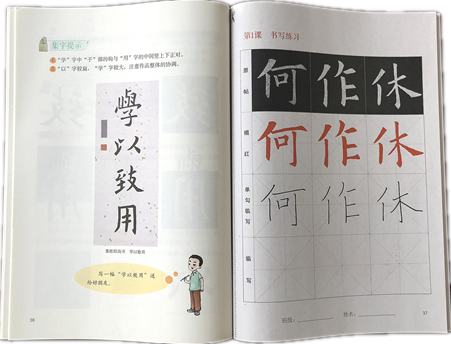 集字提示
1. "学"字中"子"部的钩与"用"字的中间竖上下正对。
2. "以"字较扁，"学"字较大，注意作品整体的协调。
學
以
致
用
集欧阳询书 学以致用
写一幅"学以致用"送
给好朋友。
36
第1课 书写练习
原帖
何 作 休
描红
何 作 休
单勾描写
何 作 休
临写
班级： 姓名：
37